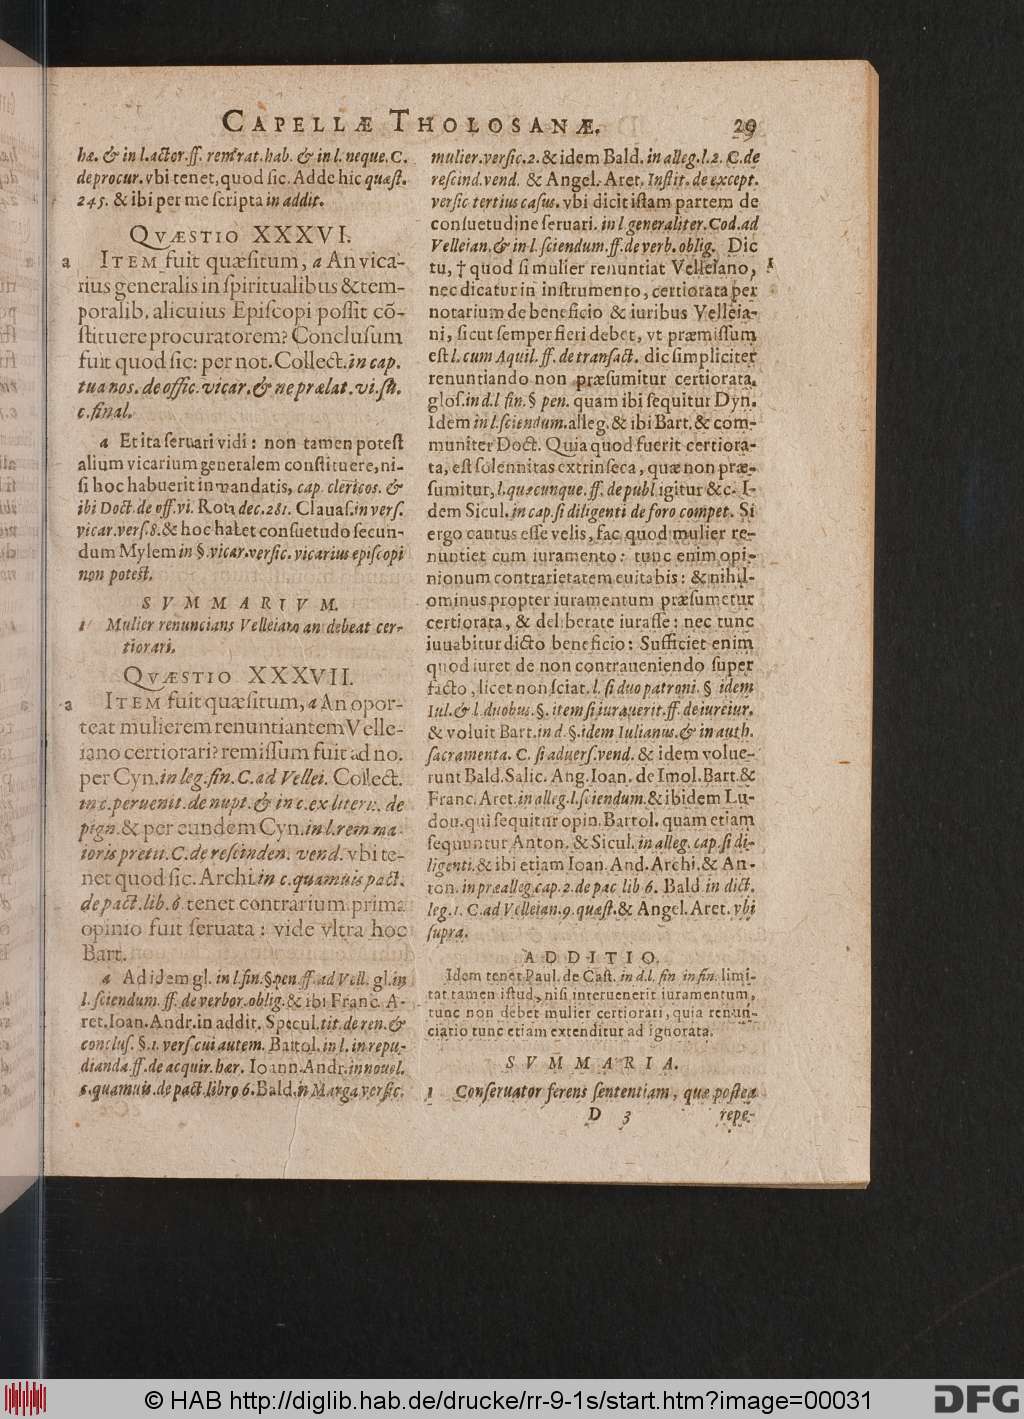 CAPELLÆ THOLOSANÆ. 29
hæ. & in l. actor. ff. rem rat. hab. & in l. neque. C.
de procur. vbi tenet, quod sic. Adde hic quæst.
245. & ibi per me scripta in addit.
QVÆSTIO XXXVI.
a ITEM fuit quæsitum, a An vica-
rius generalis in spiritualibus & tem-
poralib. alicuius Episcopi possit cõ-
stituere procuratorem? Conclusum
fuit quod sic: per not. Collect. in cap.
tua nos. de offic. vicar. & ne prælat. vi. st.
c. final.
a Et ita seruari vidi: non tamen potest
alium vicarium generalem constituere, ni-
si hoc habuerit in mandatis, cap. clericos. &
ibi Doct. de off. vi. Rota dec. 281. Clauas. in vers.
vicar. vers. 8. & hoc habet consuetudo secun-
dum Mylem in §. vicar. versic. vicarius episcopi
non potest.
SVMMARIVM.
1 Mulier renuncians Velleiano an debeat cer-
tiorari.
QVÆSTIO XXXVII.
a ITEM fuit quæsitum, a An opor-
teat mulierem renuntiantem Velle-
iano certiorari? remissum fuit ad no.
per Cyn. in leg. fin. C. ad Vellei. Collect.
in c. peruenit. de nupt. & in c. ex literis. de
pign. & per eundem Cyn. in l. rem ma-
ioris pretii. C. de rescinden. vend. vbi te-
net quod sic. Archi. in c. quamuis pact.
de pact. lib. 6. tenet contrarium. prima
opinio fuit seruata: vide vltra hoc
Bart.
a Ad idem gl. in l. fin. §. pen. ff. ad Vell. gl. in
l. sciendum. ff. de verbor. oblig. & ibi Franc. A-
ret. Ioan. Andr. in addit. Specul. tit. de ren. &
conclus. §. 1. vers. cui autem. Bartol. in l. in repu-
dianda. ff. de acquir. hær. Ioann. Andr. in nouel.
c. quamuis. de pact. libro 6. Bald. in Marga versic.
mulier. versic. 2. & idem Bald. in alleg. l. 2. C. de
rescind. vend. & Angel. Aret. Instit. de except.
versic tertius casus. vbi dicit istam partem de
consuetudine seruari. in l generaliter. Cod. ad
Velleian. & in l. sciendum. ff. de verb. oblig. Dic
tu, † quod si mulier renuntiat Velleiano, 1
nec dicatur in instrumento, certiorata per
notarium de beneficio & iuribus Velleia-
ni, sicut semper fieri debet, vt præmissum
est l. cum Aquil. ff. de transact. dic simpliciter
renuntiando non præsumitur certiorata.
glos. in d. l fin. § pen. quam ibi sequitur Dyn.
Idem in l. sciendum. alleg. & ibi Bart. & com-
muniter Doct. Quia quod fuerit certiora-
ta, est solennitas extrinseca, quæ non præ-
sumitur, l. quæcunque. ff. de publ igitur &c. I-
dem Sicul. in cap. si diligenti de foro compet. Si
ergo cautus esse velis, fac quod mulier re-
nuntiet cum iuramento: tunc enim opi-
nionum contrarietatem euitabis: & nihil-
ominus propter iuramentum præsumetur
certiorata, & deliberate iurasse: nec tunc
iuuabitur dicto beneficio: Sufficiet enim
quod iuret de non contraueniendo super
facto, licet non sciat. l. si duo patroni. § idem
Iul. & l. duobus. §. item si iurauerit. ff. de iureiur.
& voluit Bart. in d. §. idem Iulianus. & in auth.
sacramenta. C. si aduers. vend. & idem volue-
runt Bald. Salic. Ang. Ioan. de Imol. Bart. &
Franc. Aret. in alleg. l. sciendum. & ibidem Lu-
dou. qui sequitur opin. Bartol. quam etiam
sequuntur Anton. & Sicul. in alleg. cap. si di-
ligenti. & ibi etiam Ioan. And. Archi. & An-
ton. in præalleg. cap. 2. de pac lib 6. Bald in dict.
leg. 1. C. ad Velleian. 9. quæst. & Angel. Aret. vbi
supra.
ADDITIO.
Idem tenet Paul. de Cast. in d. l. fin in fin. limi-
tat tamen istud, nisi interuenerit iuramentum,
tunc non debet mulier certiorari, quia renun-
ciatio tunc etiam extenditur ad ignorata.
SVMMARIA.
1 Conseruator ferens sententiam, quæ postea
D 3 repe-
© HAB http://diglib.hab.de/drucke/rr-9-1s/start.htm?image=00031
DFG